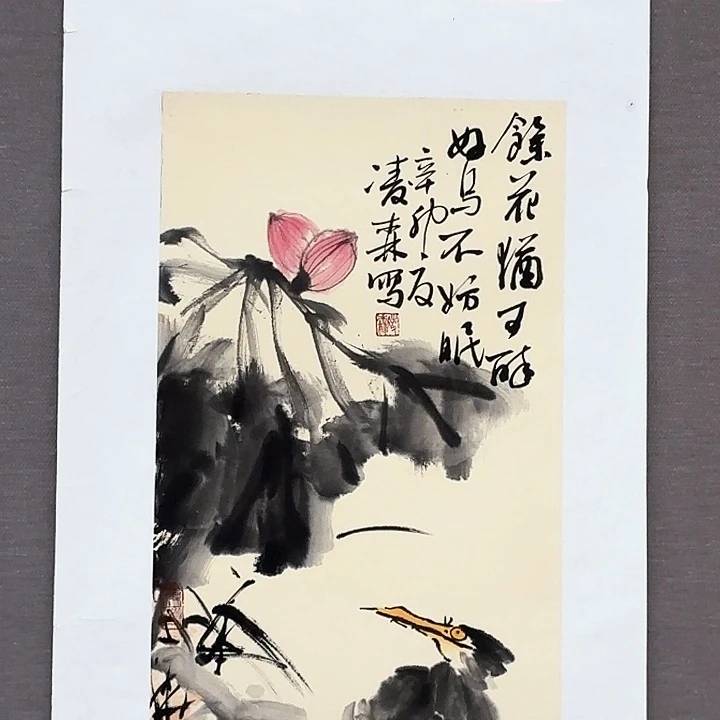 餘花猶可醉
好鳥不妨眠
辛卯夏
凌森寫